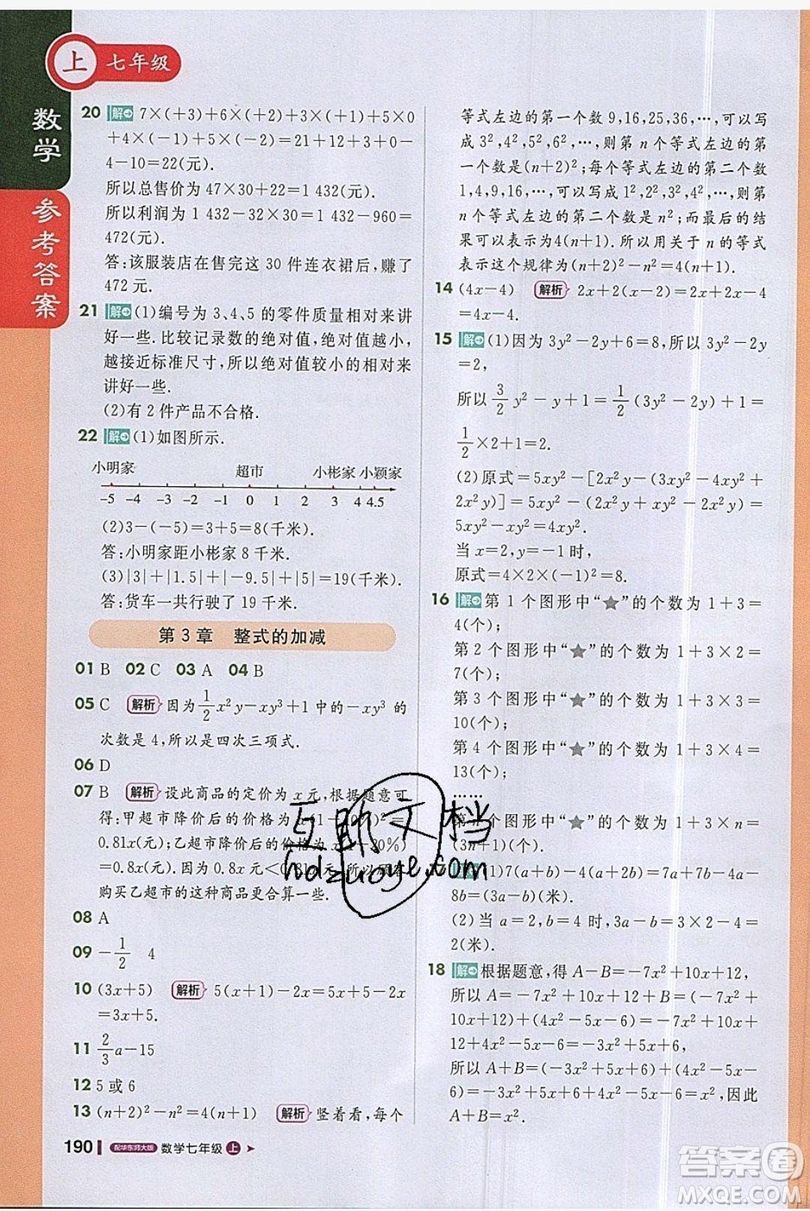 上 七年级
数学
参考答案
20 解 7×(+3)+6×(+2)+3×(+1)+5×0
+4×(-1)+5×(-2)=21+12+3+0-
4-10=22(元).
所以总售价为 47×30+22=1 432(元).
所以利润为 1 432-32×30=1 432-960=
472(元).
答:该服装店在售完这 30 件连衣裙后,赚了
472 元.
21 解 (1)编号为 3、4、5 的零件质量相对来讲
好一些. 比较记录数的绝对值,绝对值越小,
越接近标准尺寸,所以绝对值较小的相对来
讲好一些.
(2)有 2 件产品不合格.
22 解 (1)如图所示.
小明家 超市 小彬家 小颖家
-5 -4 -3 -2 -1 0 1 2 3 4 4.5
(2)3-(-5)=3+5=8(千米).
答:小明家距小彬家 8 千米.
(3)|3|+|1.5|+|-9.5|+|5|=19(千米).
答:货车一共行驶了 19 千米.
第 3 章 整式的加减
01 B 02 C 03 A 04 B
05 C 解析 因为 1/2 x²y-xy³+1 中的-xy³ 的
次数是 4,所以是四次三项式.
06 D
07 B 解析 设此商品的定价为 x 元,根据题意可
得:甲超市降价后的价格为
0.81x(元);乙超市降价后的价格为
=0.8x(元). 因为 0.8x 元<0.81x
购买乙超市的这种商品更合算一些.
08 A
09 -1/2 4
10 (3x+5) 解析 5(x+1)-2x=5x+5-2x
=(3x+5)元.
11 2/3 a-15
12 5 或 6
13 (n+2)²-n²=4(n+1) 解析 竖着看,每个
190 配华东师大版 数学七年级 上
等式左边的第一个数 9,16,25,36,…,可以写
成 3²,4²,5²,6²,…,则第 n 个等式左边的第
一个数是(n+2)²;每个等式左边的第二个数
1,4,9,16,…,可以写成 1²,2²,3²,4²,…,则第
n 个等式左边的第二个数是 n²;而最后的结
果可以表示为 4(n+1). 所以用关于 n 的等式
表示这个规律为(n+2)²-n²=4(n+1).
14 (4x-4) 解析 2x+2(x-2)=2x+2x-4
=4x-4.
15 解 (1)因为 3y²-2y+6=8,所以 3y²-2y
=2,
所以 3/2 y²-y+1=1/2(3y²-2y)+1=
1/2×2+1=2.
(2)原式=5xy²-[2x²y-(2x²y-4xy²)]
=5xy²-(2x²y-2x²y+4xy²)=5xy²-2x²y+2x²y-4xy²=xy².
当 x=4,y=-1时,
原式=4×2×(-1)²=8.
16 解 第 1 个图形中“★”的个数为 1+3=
4(个);
第 2 个图形中“★”的个数为 1+3×2=
7(个);
第 3 个图形中“★”的个数为 1+3×3=
10(个);
第 4 个图形中“★”的个数为 1+3×4=
13(个);
……
第 n 个图形中“★”的个数为 1+3×n=
(3n+1)(个).
(1)7(a+b)-4(a+2b)=7a+7b-4a-
8b=(3a-b)(米).
(2)当 a=2,b=4 时,3a-b=3×2-4=
2(米).
18 解 根据题意,得 A-B=-7x²+10x+12,
所以 A=-7x²+10x+12+B=(-7x²+
10x+12)+(4x²-5x-6)=-7x²+10x+
12+4x²-5x-6=-3x²+5x+6,
所以 A+B=(-3x²+5x+6)+(4x²-5x-
6)=-3x²+5x+6+4x²-5x-6=x².
所以 A+B=x².
互助文档
hdzuoye.com
答案圈
MXQE.COM